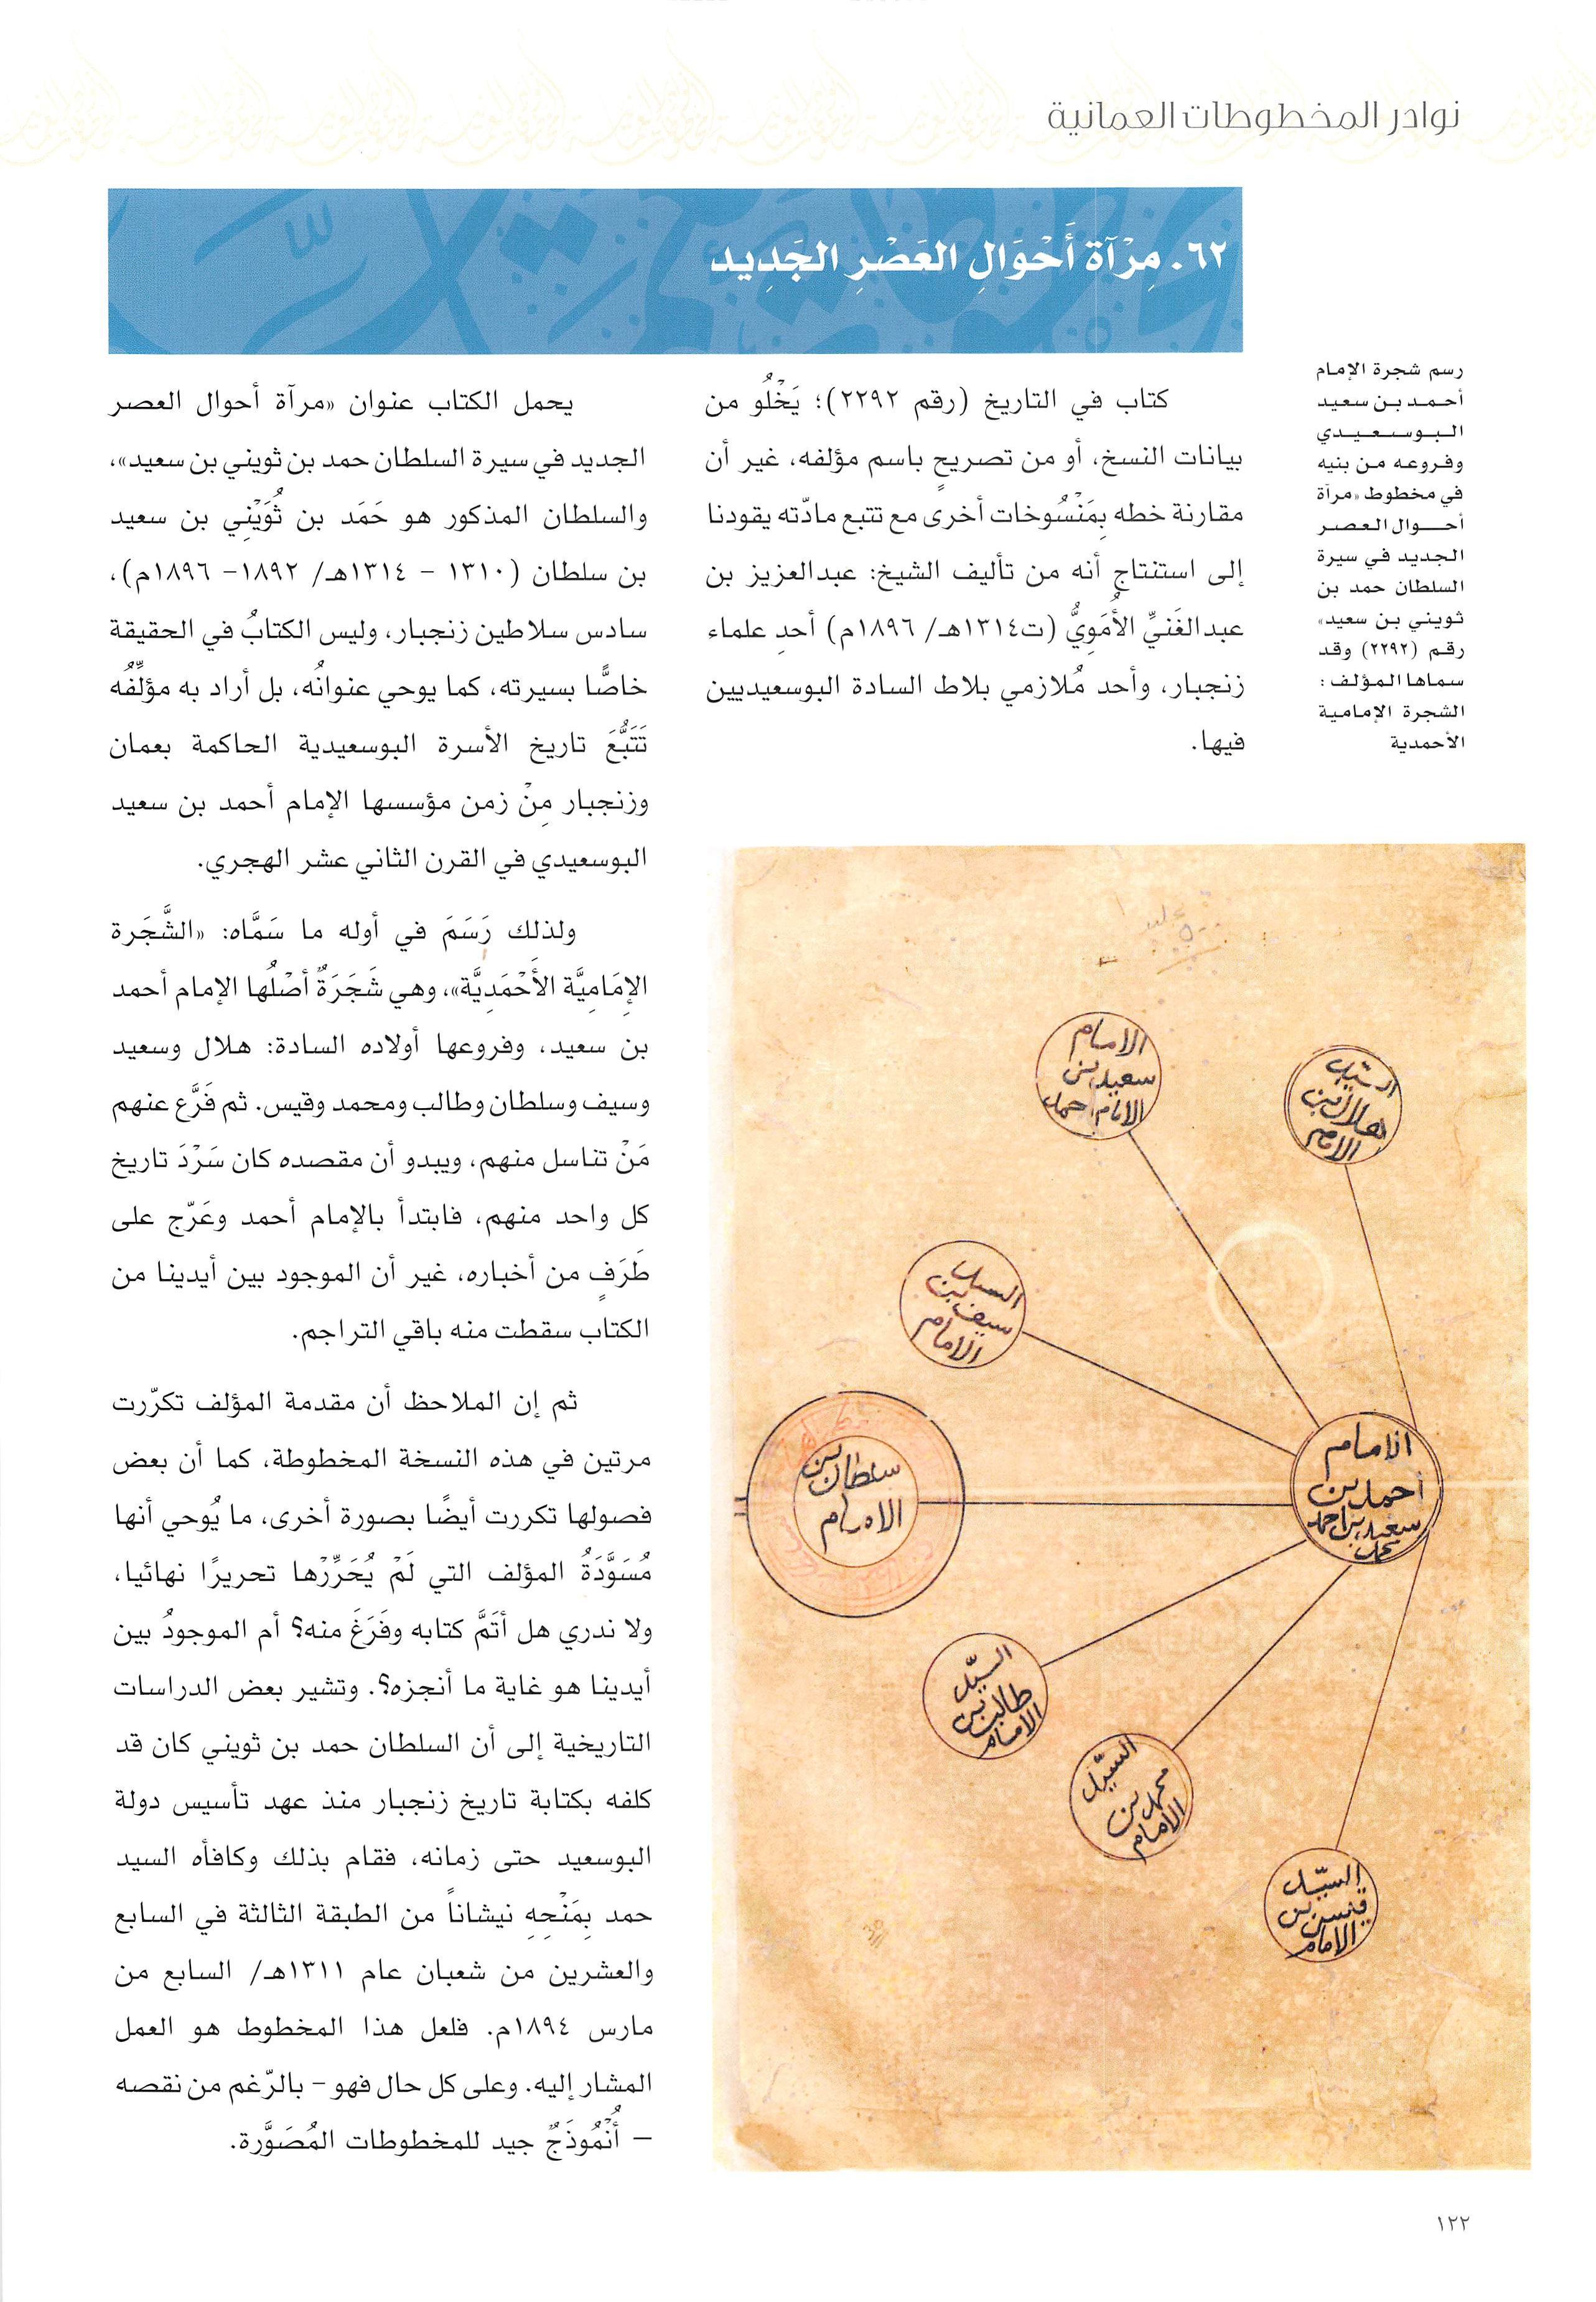 نوادر المخطوطات العمانية
٦٢. مِرْآة أَحْوَالِ العَصْرِ الجَدِيد
رسم شجرة الإمام
أحمد بن سعيد
البوسعيدي
وفروعه من بنيه
في مخطوط «مرآة
أحوال العصر
الجديد في سيرة
السلطان حمد بن
ثويني بن سعيد»
رقم (٢٢٩٢) وقد
سماها المؤلف :
الشجرة الإمامية
الأحمدية
كتاب في التاريخ (رقم ٢٢٩٢)؛ يَخْلُو من
بيانات النسخ، أو من تصريحٍ باسم مؤلفه، غير أن
مقارنة خطه بِمَنْسُوخات أخرى مع تتبع مادّته يقودنا
إلى استنتاجٍ أنه من تأليف الشيخ: عبدالعزيز بن
عبدالغَنيِّ الأُمَوِيُّ (ت١٣١٤هـ/ ١٨٩٦م) أحدِ علماء
زنجبار، وأحد مُلازمي بلاط السادة البوسعيديين
فيها.
يحمل الكتاب عنوان «مرآة أحوال العصر
الجديد في سيرة السلطان حمد بن ثويني بن سعيد»،
والسلطان المذكور هو حَمَد بن ثُوَيْنِي بن سعيد
بن سلطان (١٣١٠ - ١٣١٤هـ/ ١٨٩٢- ١٨٩٦م)،
سادس سلاطين زنجبار، وليس الكتابُ في الحقيقة
خاصًّا بسيرته، كما يوحي عنوانُه، بل أراد به مؤلِّفُه
تَتَبُّعَ تاريخ الأسرة البوسعيدية الحاكمة بعمان
وزنجبار مِنْ زمن مؤسسها الإمام أحمد بن سعيد
البوسعيدي في القرن الثاني عشر الهجري.
ولذلك رَسَمَ في أوله ما سَمَّاه: «الشَّجَرة
الإِمَامِيَّة الأَحْمَدِيَّة»، وهي شَجَرَةٌ أصْلُها الإمام أحمد
بن سعيد، وفروعها أولاده السادة: هلال وسعيد
وسيف وسلطان وطالب ومحمد وقيس. ثم فَرَّع عنهم
مَنْ تناسل منهم، ويبدو أن مقصده كان سَرْدَ تاريخ
كل واحد منهم، فابتدأ بالإمام أحمد وعَرّج على
طَرَفٍ من أخباره، غير أن الموجود بين أيدينا من
الكتاب سقطت منه باقي التراجم.
ثم إن الملاحظ أن مقدمة المؤلف تكرّرت
مرتين في هذه النسخة المخطوطة، كما أن بعض
فصولها تكررت أيضًا بصورة أخرى، ما يُوحي أنها
مُسَوَّدَةُ المؤلف التي لَمْ يُحَرِّرْها تحريرًا نهائيا،
ولا ندري هل أتَمَّ كتابه وفَرَغَ منه؟ أم الموجودُ بين
أيدينا هو غاية ما أنجزه؟. وتشير بعض الدراسات
التاريخية إلى أن السلطان حمد بن ثويني كان قد
كلفه بكتابة تاريخ زنجبار منذ عهد تأسيس دولة
البوسعيد حتى زمانه، فقام بذلك وكافأه السيد
حمد بِمَنْحِهِ نيشاناً من الطبقة الثالثة في السابع
والعشرين من شعبان عام ١٣١١هـ/ السابع من
مارس ١٨٩٤م. فلعل هذا المخطوط هو العمل
المشار إليه. وعلى كل حال فهو - بالرّغم من نقصه
- أُنْمُوذَجٌ جيد للمخطوطات المُصَوَّرة.
الامام
سعيد بن
الامام احمد
السيد
هلال بن
الامام
السيد
سيف بن
الامام
سلطان بن
الامام
الامام
أحمد بن
سعيد بن احمد
محمد
السيّد
طالب بن
الامام
السيّد
محمد بن
الامام
السيّد
قيس بن
الامام
١٢٢